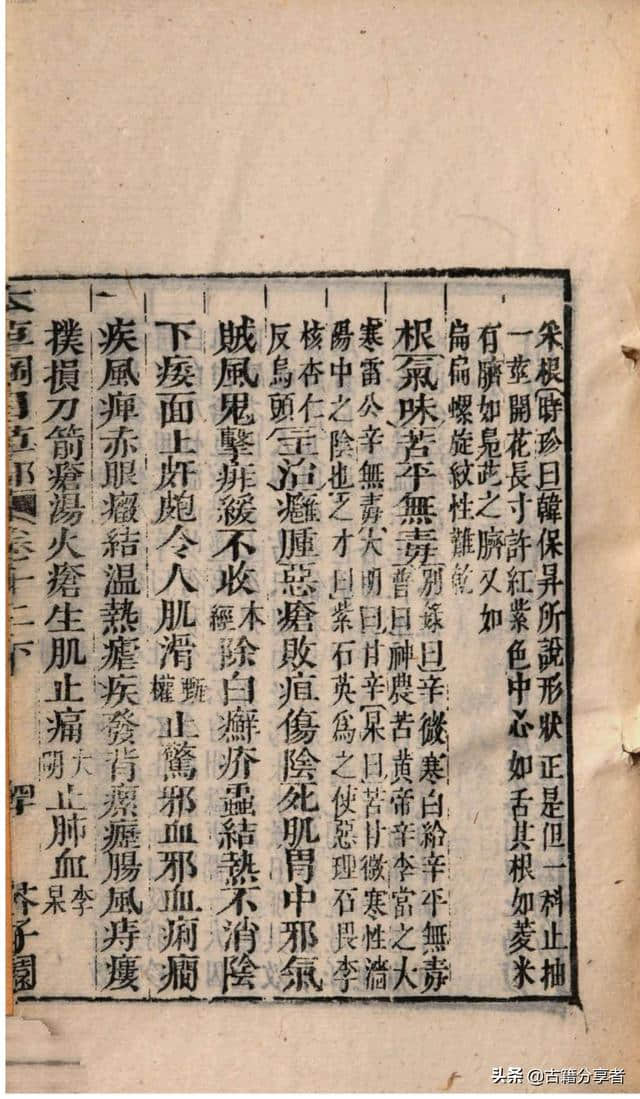 采根〔時珍曰韓保昇所說形狀正是但一科止抽
一莖開花長寸許紅紫色中心如舌其根如菱米
有臍如鳧茈之臍又如
扁扁螺旋紋性難乾
根〔氣味苦平無毒〔別錄曰辛微寒白給辛平無毒
普曰神農苦黃帝辛李當之大
寒雷公辛無毒〔大明曰甘辛〔杲曰苦甘微寒性濇
陽中之陰也〔之才曰紫石英爲之使惡理石畏李
核杏仁
反烏頭〔主治癰腫惡瘡敗疽傷陰死肌胃中邪氣
賊風鬼擊痱緩不收本經除白癬疥蟲結熱不消陰
下痿面上皯皰令人肌滑甄權止驚邪血邪血痢癇
疾風痺赤眼癥結溫熱瘧疾發背瘰癧腸風痔瘻
撲損刀箭瘡湯火瘡生肌止痛大明止肺血李杲
本草綱目草部 卷十二下 芥子園
头条 @古籍分享者